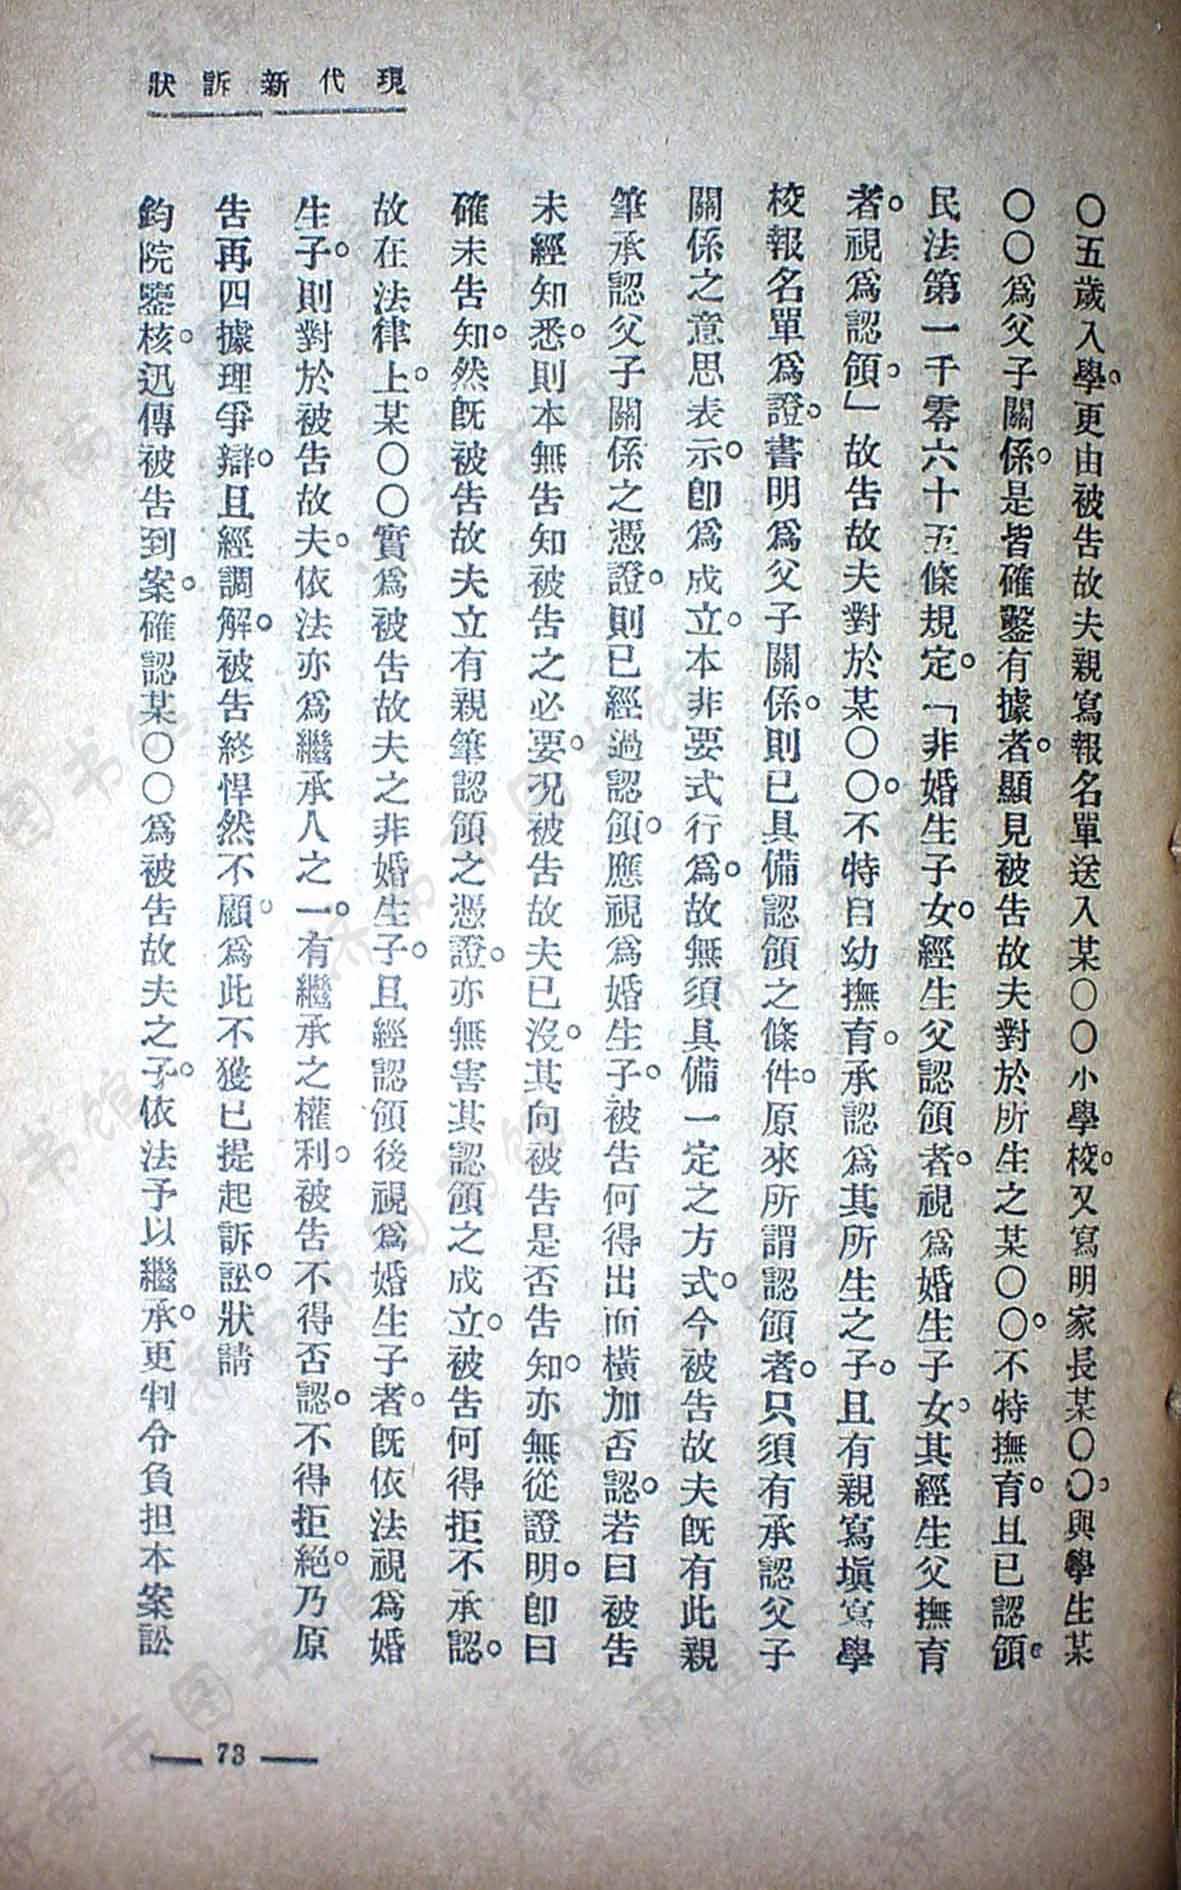 現代新訴狀
〇五歲入學。更由被告故夫親寫報名單送入某〇〇小學校。又寫明家長某〇〇。與學生某
〇〇為父子關係。是皆確鑿有據者。顯見被告故夫對於所生之某〇〇。不特撫育。且已認領。
民法第一千零六十五條規定。「非婚生子女。經生父認領者。視為婚生子女。其經生父撫育
者。視為認領。」故告故夫對於某〇〇。不特自幼撫育。承認為其所生之子。且有親寫塡寫學
校報名單為證。書明為父子關係。則已具備認領之條件。原來所謂認領者。只須有承認父子
關係之意思表示。卽為成立。本非要式行為。故無須具備一定之方式。今被告故夫旣有此親
筆承認父子關係之憑證。則已經過認領。應視為婚生子。被告何得出而橫加否認。若曰被告
未經知悉。則本無告知被告之必要。況被告故夫已沒。其向被告是否告知。亦無從證明。卽曰
確未告知。然旣被告故夫立有親筆認領之憑證。亦無害其認領之成立。被告何得拒不承認。
故在法律上。某〇〇實為被告故夫之非婚生子。且經認領後視為婚生子者。旣依法視為婚
生子。則對於被告故夫。依法亦為繼承人之一。有繼承之權利。被告不得否認。不得拒絕。乃原
告再四據理爭辯。且經調解。被告終悍然不顧。為此不獲已提起訴訟。狀請
鈞院鑒核。迅傳被告到案。確認某〇〇為被告故夫之子。依法予以繼承。更判令負担本案訟
73
市图书馆